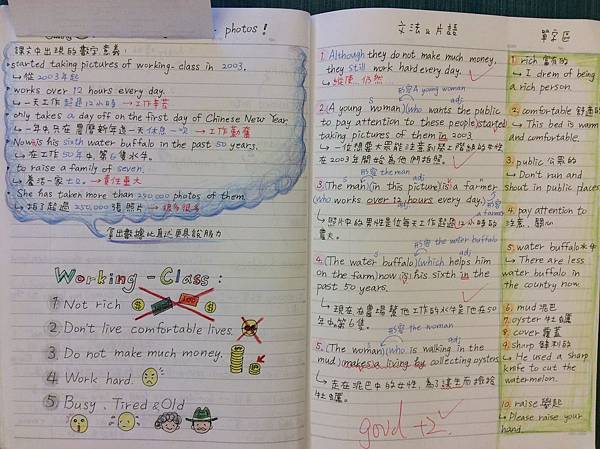 photos!
課文中出現的數字意義:
started taking pictures of working-class in 2003.
↳從2003年起
works over 12 hours every day.
↳一天工作超過12小時 →工作辛苦
only takes a day off on the first day of Chinese New Year
↳一年中只在農曆新年這一天休息一次 →工作勤奮
Now is his sixth water buffalo in the past 50 years.
↳在工作50年中,第6隻水牛。
to raise a family of seven.
↳養活一家七口。→責任重大
She has taken more than 250,000 photos of them
↳拍了超過250,000張照片→很多很多
寫出數據比直述更具說服力
Working-Class:
1. Not rich
2. Don't live comfortable lives.
3. Do not make much money.
4. Work hard.
5. Busy、Tired & Old
文法 & 片語
1. Although they do not make much money,
they still work hard every day.
↳縱使…仍然
形容 A young woman
s adj
2. (A young woman)(who wants the public
to pay attention to these people) started
taking pictures of them in 2003.
↳一位想要大眾能注意到勞工階級的女性
在2003年開始為他們拍照。
形容 the man
s adj
3. (The man)(in this picture) is a farmer
(who works over 12 hours every day.)
adj 形容 a farmer
↳照片中的男性是位每天工作超過12小時的
農夫。
形容 the water buffalo
s adj
4. (The water buffalo)(which helps him
on the farm) now is his sixth in the
past 50 years.
↳現在在農場幫他工作的水牛是他在50
年中第6隻。
形容 the woman
s adj
5. (The woman)(who is walking in the
mud) makes a living by collecting oysters.
↳走在泥巴中的女性,為了謀生而撿拾
牡蠣。
good +2
單字區
1. rich 富有的
↳I drem of being
a rich person.
2. comfortable 舒適的
↳This bed is warm
and comfortable.
3. public 公眾的
↳Don't run and
shout in public places
4. pay attention to
注意、關心
5. water buffalo 水牛
↳There are less
water buffalo in
the country now.
6. mud 泥巴
7. oyster 牡蠣
8. cover 覆蓋
9. sharp 鋒利的
↳He used a sharp
knife to cut the
watermelon.
10. raise 舉起
↳Please raise your
hand.